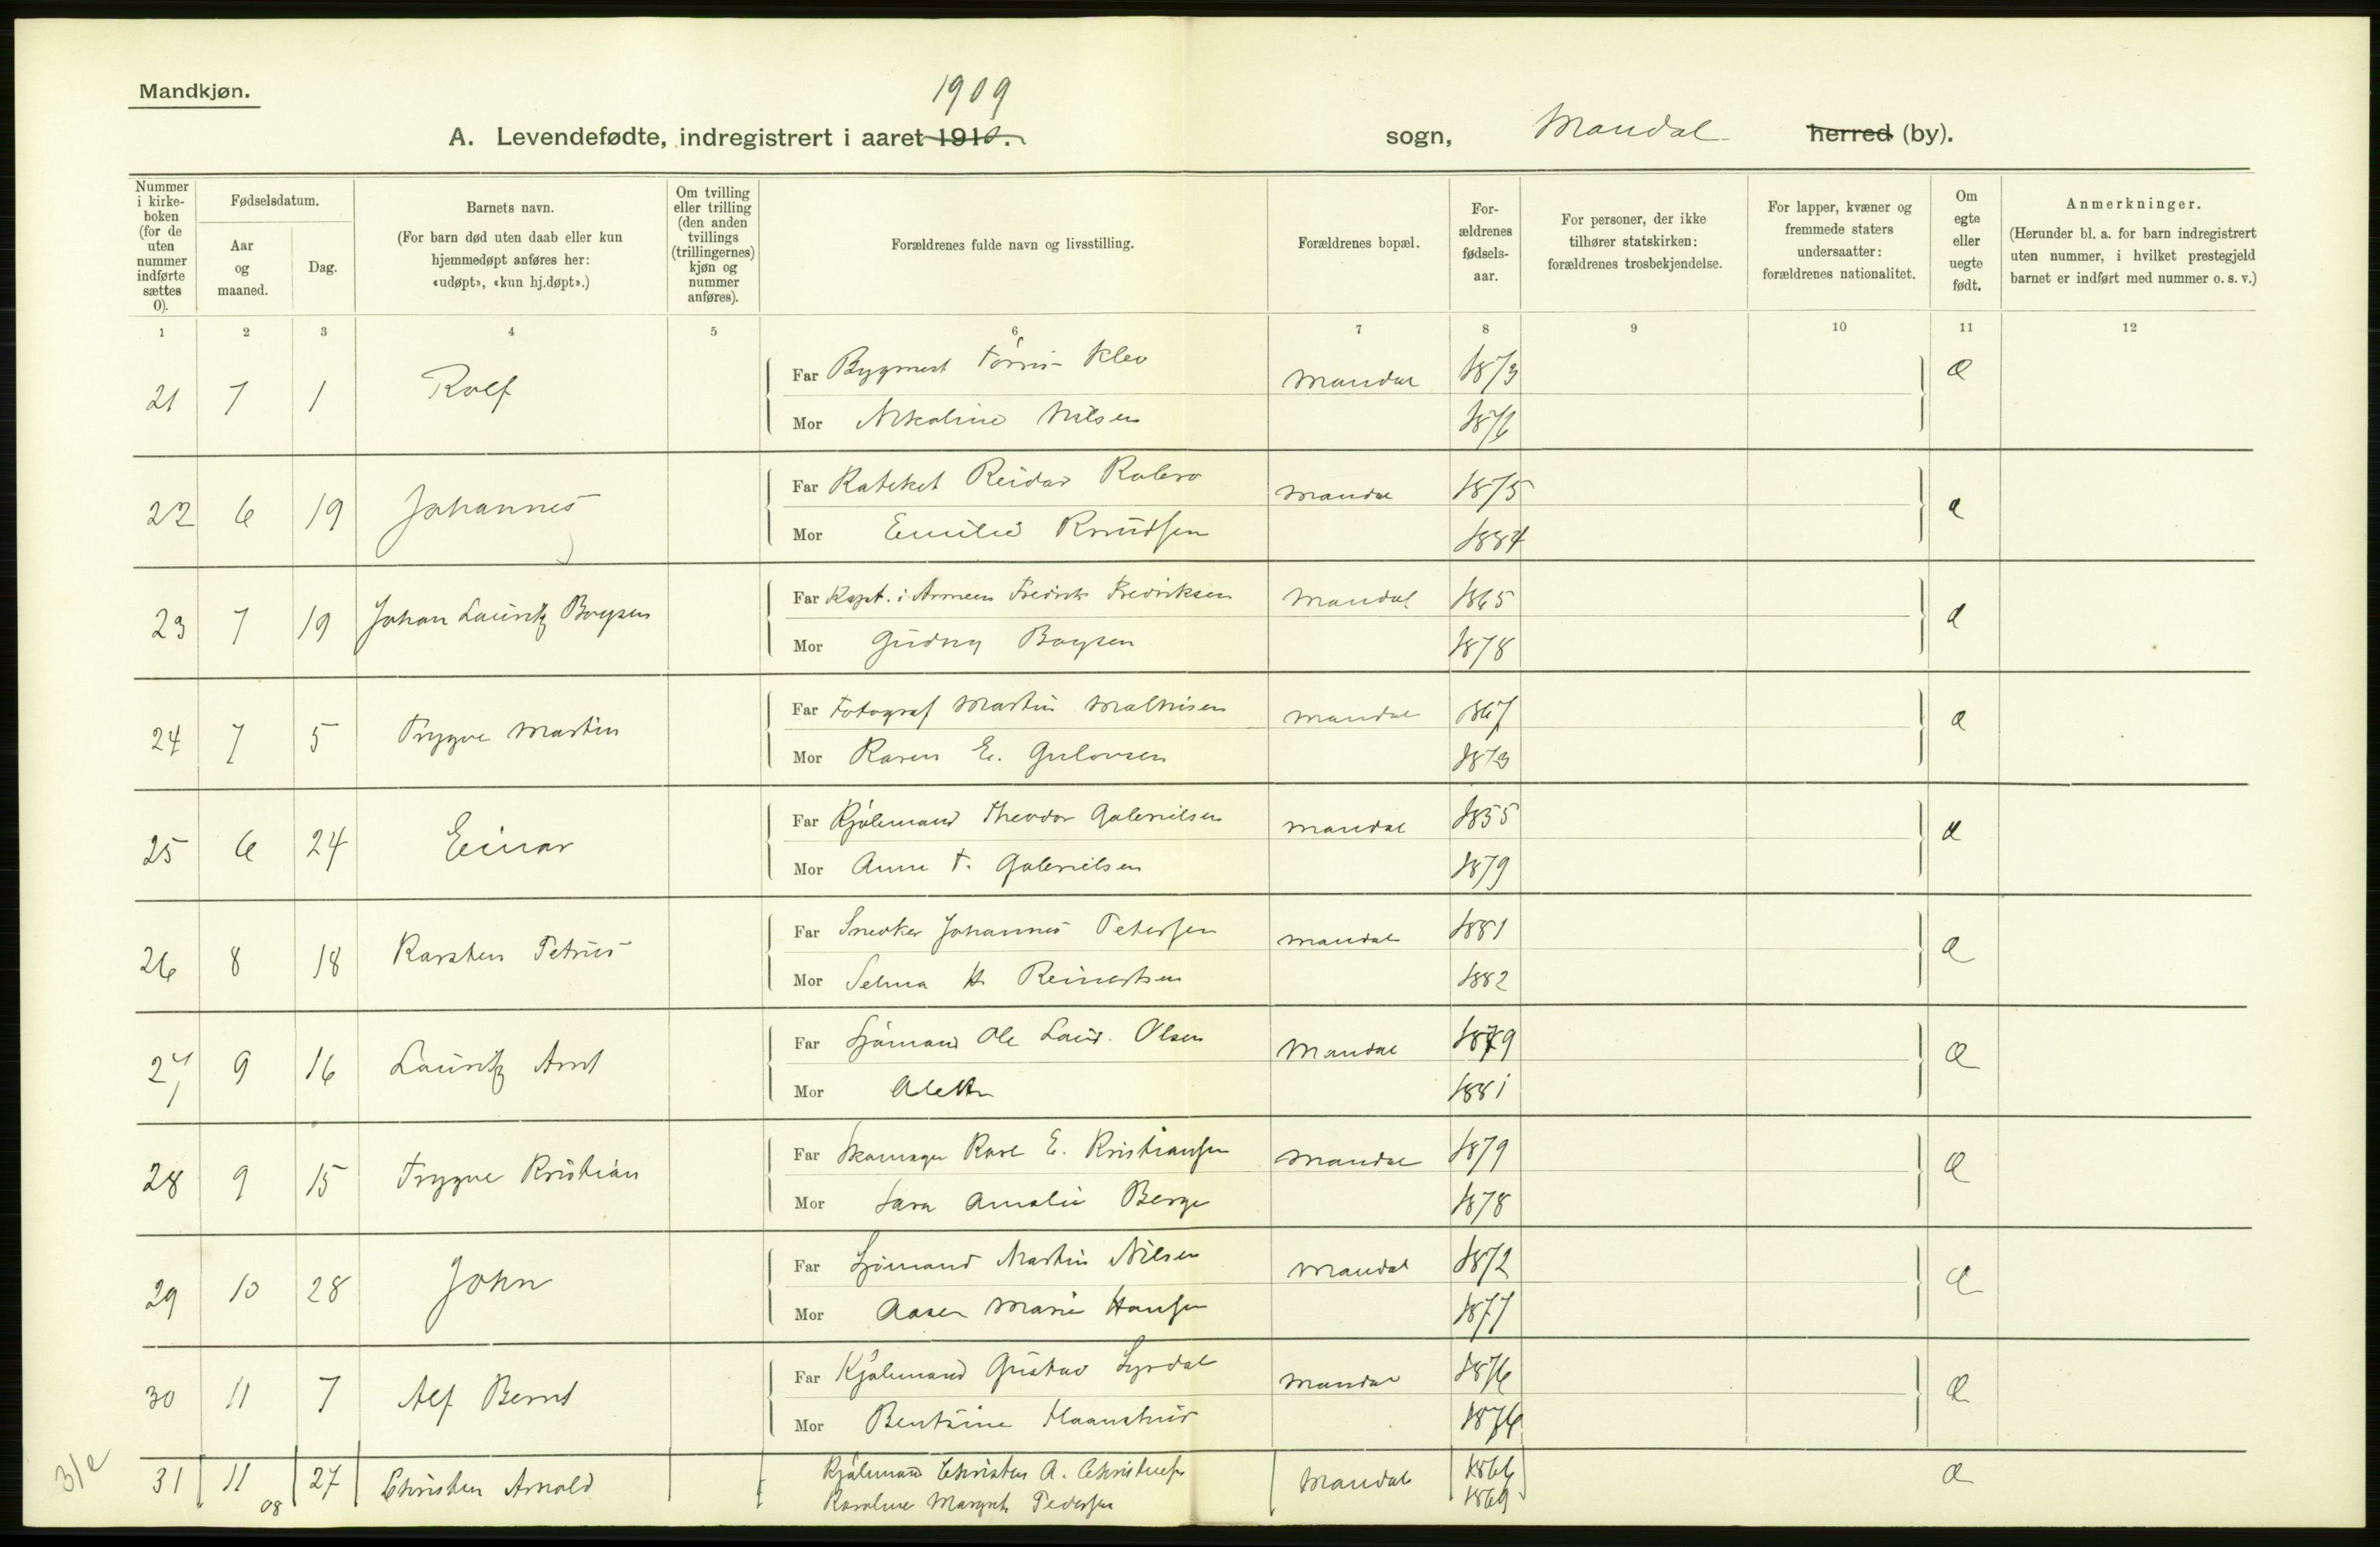 Mandkjøn.
1909
A. Levendefødte, indregistrert i aaret 1910. sogn, Mandal herred (by).
Nummer i kirkeboken (for de uten nummer indførte sættes 0).
Fødselsdatum.
Aar og maaned.
Dag.
Barnets navn.
(For barn død uten daab eller kun hjemmedøpt anføres her: «udøpt», «kun hj.døpt».)
Om tvilling eller trilling (den anden tvillings (trillingernes) kjøn og nummer anføres).
Forældrenes fulde navn og livsstilling.
Forældrenes bopæl.
Forældrenes fødselsaar.
For personer, der ikke tilhører statskirken: forældrenes trosbekjendelse.
For lapper, kvæner og fremmede staters undersaatter: forældrenes nationalitet.
Om egte eller uegte født.
Anmerkninger.
(Herunder bl. a. for barn indregistrert uten nummer, i hvilket prestegjeld barnet er indført med nummer o. s. v.)
1 2 3 4 5 6 7 8 9 10 11 12
21 7 1 Rolf Far Bygmest Tørris Klev Mandal 1873 Æ
Mor Nikoline Nilsen 1876
22 6 19 Johannes Far Kateket Reidar Mandal 1875 Æ
Mor Emilie Knudsen 1884
23 7 19 Johan Lauritz Boysen Far Kapt. i Armeen Fredrik Fredriksen Mandal 1865 Æ
Mor Gudny Boysen 1878
24 7 5 Trygve Martin Far Fotograf Martin Mandal 1867 Æ
Mor Karen E. Gulovsen 1873
25 6 24 Einar Far Kjølemand Theodor Gabrielsen Mandal 1855 Æ
Mor Anne T. Gabrielsen 1879
26 8 18 Karsten Petrus Far Snedker Johannes Petersen Mandal 1881 Æ
Mor Selma H Reinertsen 1882
27 9 16 Lauritz Arnt Far Sjømand Ole Laur. Olsen Mandal 1879 Æ
Mor Alette 1881
28 9 15 Trygve Kristian Far Skomager Karl E. Kristiansen Mandal 1879 Æ
Mor Sara Amalie Berge 1878
29 10 28 John Far Sjømand Martin Nilsen Mandal 1872 Æ
Mor Aasen Marie Hansen 1877
30 11 7 Alf Bernt Far Kjølemand Gustav Lyrdal Mandal 1876 Æ
Mor Bentsine 1876
31/2 31 11 08 27 Christen Arnold Kjølemand Christen A. Christensen Mandal 1866 Æ
Karoline Margrete Pedersen 1869